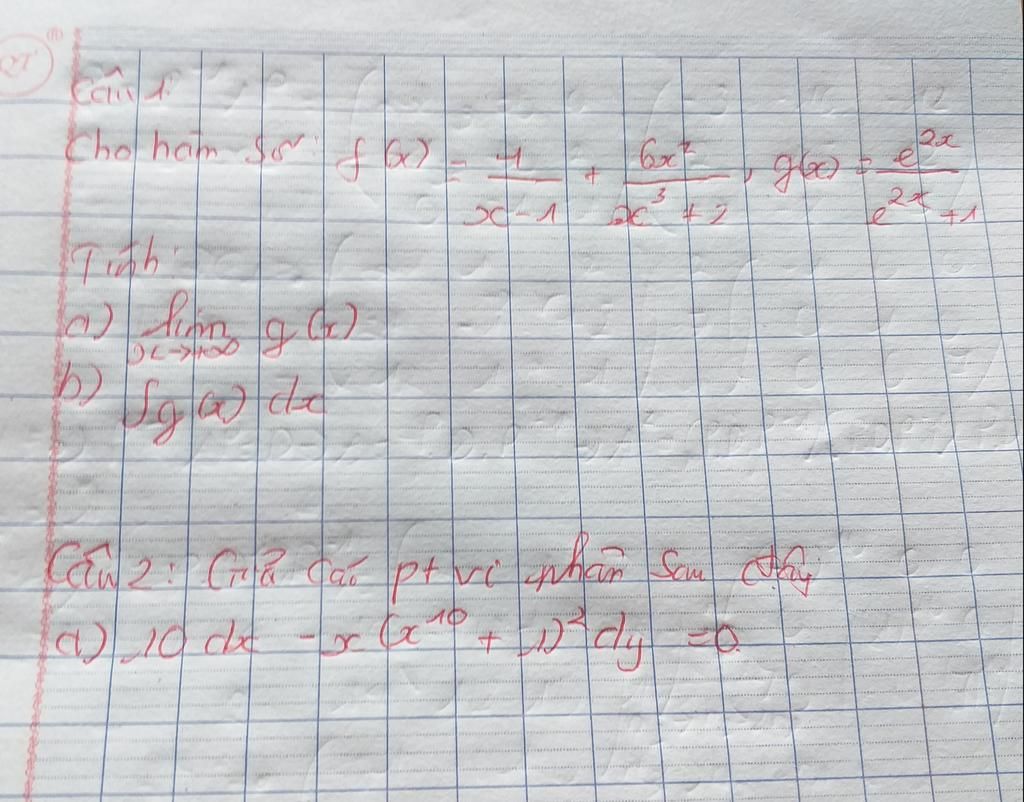 Câu 1:
Cho hàm số: f(x) = 1/(x-1) + 6x²/(x³+2), g(x) = e^{2x}/(e^{2x}+1)
Tính:
a) lim x→+∞ g(x)
b) ∫g(x) dx
Câu 2: Giả các pt vi phân sau đây
a) 10 dx - x(x^{10} + 1)² dy = 0